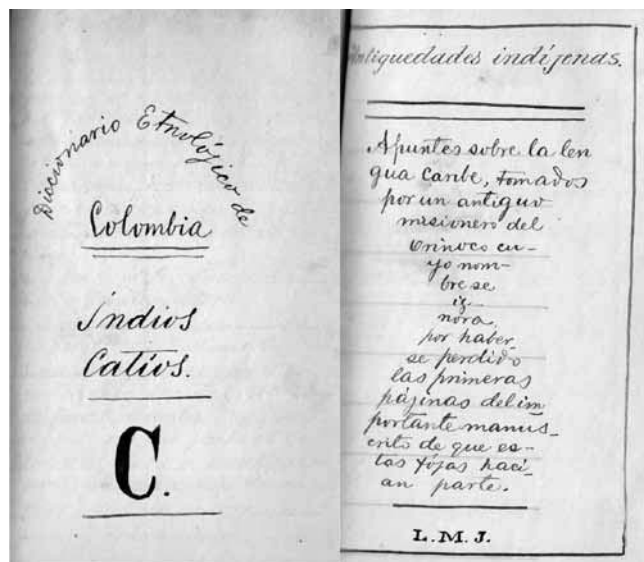 Diccionario Etnológico de
Colombia
Indios
Catíos.
C.
Antiguedades indíjenas.
Apuntes sobre la len
gua caribe, tomados
por un antiguo
misionero del
Orinoco cu-
yo nom-
bre se
ig-
nora
por haber-
se perdido
las primeras
pájinas del im
portante manus-
crito de que es-
tas fójas hací-
an parte.
L. M. J.